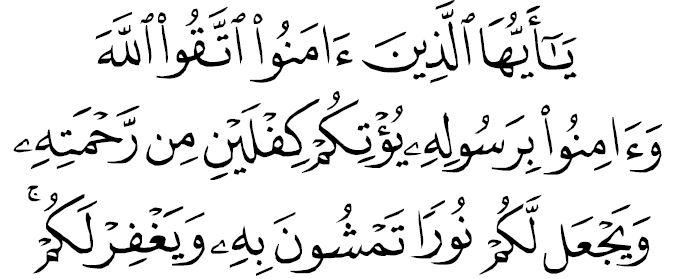 يَـٰٓأَيُّهَا ٱلَّذِينَ ءَامَنُوا۟ ٱتَّقُوا۟ ٱللَّهَ
وَءَامِنُوا۟ بِرَسُولِهِۦ يُؤْتِكُمْ كِفْلَيْنِ مِن رَّحْمَتِهِۦ
وَيَجْعَل لَّكُمْ نُورًا تَمْشُونَ بِهِۦ وَيَغْفِرْ لَكُمْ ۚ